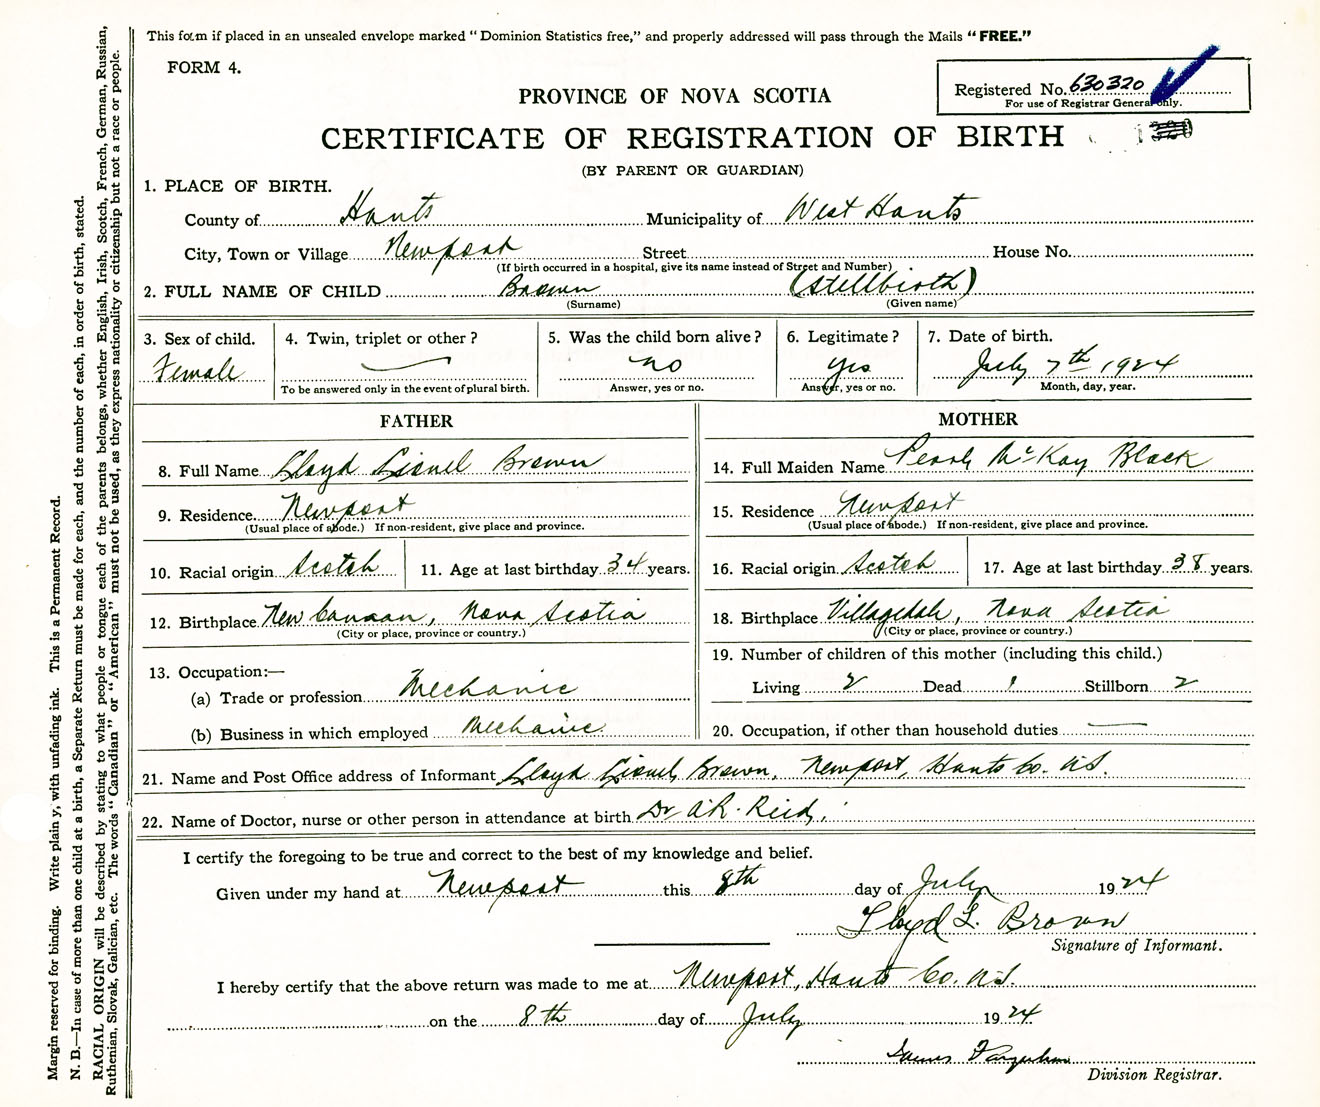 This form if placed in an unsealed envelope marked "Dominion Statistics free," and properly addressed will pass through the Mails "FREE."
FORM 4.
Registered No. 630320
For use of Registrar General only.
PROVINCE OF NOVA SCOTIA
CERTIFICATE OF REGISTRATION OF BIRTH
(BY PARENT OR GUARDIAN)
1. PLACE OF BIRTH.
County of Hants Municipality of West Hants
City, Town or Village Newport Street House No.
(If birth occurred in a hospital, give its name instead of Street and Number)
2. FULL NAME OF CHILD Brown (Stillbirth)
(Surname) (Given name)
3. Sex of child. 4. Twin, triplet or other? 5. Was the child born alive? 6. Legitimate? 7. Date of birth.
Female — no yes July 7th 1924
To be answered only in the event of plural birth. Answer, yes or no. Answer, yes or no. Month, day, year.
FATHER MOTHER
8. Full Name Lloyd Lionel Brown 14. Full Maiden Name Pearl McKay Black
9. Residence. Newport 15. Residence Newport
(Usual place of abode.) If non-resident, give place and province. (Usual place of abode.) If non-resident, give place and province.
10. Racial origin Scotch 11. Age at last birthday 34 years. 16. Racial origin Scotch 17. Age at last birthday 38 years.
12. Birthplace New Canaan, Nova Scotia 18. Birthplace Villagedale, Nova Scotia
(City or place, province or country.) (City or place, province or country.)
13. Occupation:— 19. Number of children of this mother (including this child.)
(a) Trade or profession Mechanic Living 2 Dead 1 Stillborn 2
(b) Business in which employed Mechanic 20. Occupation, if other than household duties —
21. Name and Post Office address of Informant Lloyd Lionel Brown, Newport, Hants Co. N.S.
22. Name of Doctor, nurse or other person in attendance at birth Dr A.R. Reid,
I certify the foregoing to be true and correct to the best of my knowledge and belief.
Given under my hand at Newport this 8th day of July 1924
Lloyd L. Brown
Signature of Informant.
I hereby certify that the above return was made to me at Newport, Hants Co. N.S.
on the 8th day of July 1924
James
Division Registrar.
Margin reserved for binding. Write plain y, with unfading ink. This is a Permanent Record.
N. B.—In case of more than one child at a birth, a Separate Return must be made for each, and the number of each, in order of birth, stated.
RACIAL ORIGIN will be described by stating to what people or tongue each of the parents belongs, whether English, Irish, Scotch, French, German, Russian,
Ruthenian, Slovak, Galician, etc. The words "Canadian" or "American" must not be used, as they express nationality or citizenship but not a race or people.